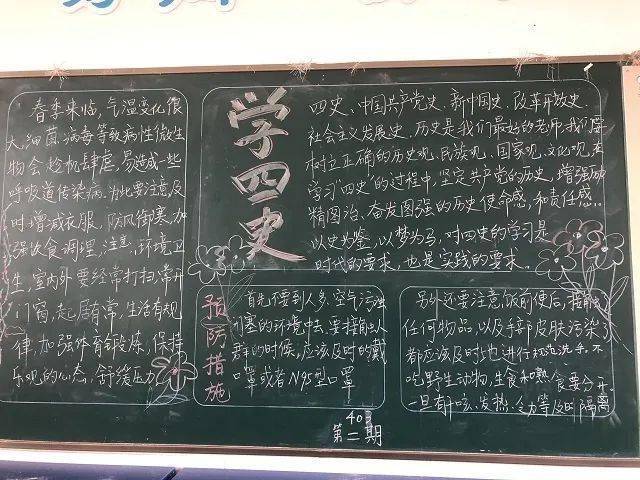 春季来临,气温变化很
大,细菌、病毒等致病性微生
物会趁机肆虐,易造成一些
呼吸道传染病。为此要注意及
时增减衣服、防风御寒,加
强饮食调理,注意环境卫
生,室内外要经常打扫,常开
门窗,起居有常,生活有规
律,加强体育锻炼,保持
乐观的心态,舒缓压力
学四史
四史、中国共产党史、新中国史、改革开放史、
社会主义发展史、历史是我们最好的老师,我们应
树立正确的历史观、民族观、国家观、文化观,在
学习“四史”的过程中,坚定共产党的历史,增强励
精图治、奋发图强的历史使命感,和责任感。
以史为鉴,以梦为马,对四史的学习是
时代的要求,也是实践的要求。
预防措施
首先不要到人多、空气污浊
闭塞的环境中去,要接触人
群的时候,应该及时的戴
口罩或者N95型口罩
另外还要注意,饭前便后,接触了
任何物品,以及手部皮肤污染了
都应该及时地进行规范洗手,不
吃野生动物,生食和熟食要分开,
一旦有干咳、发热、乏力等及时隔离
403
第二期